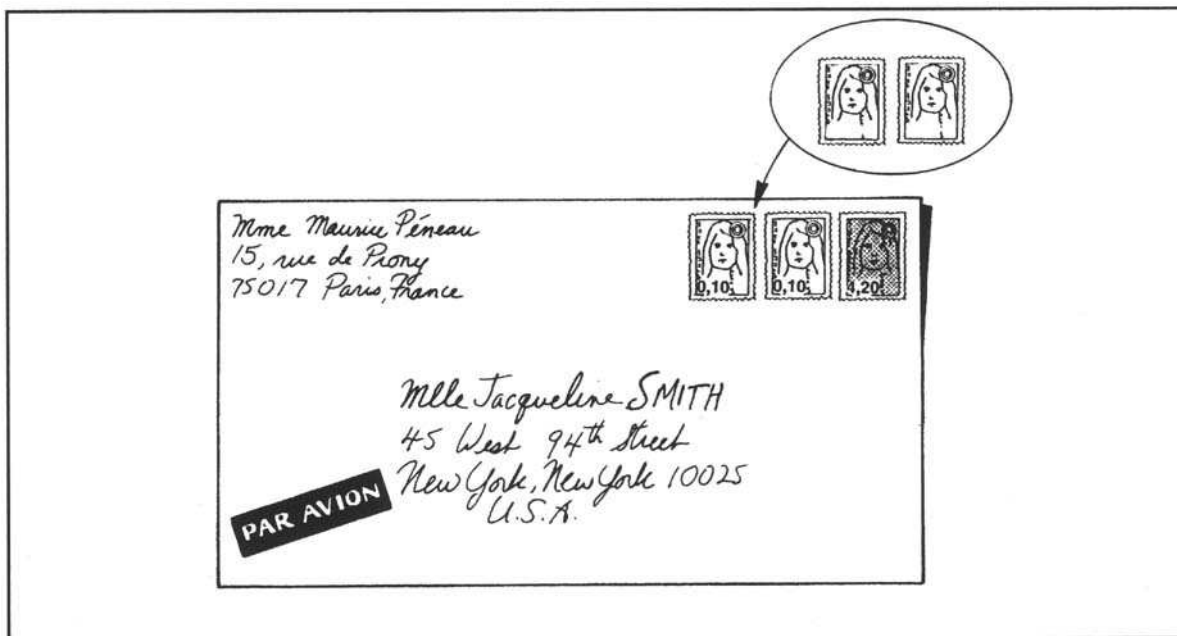 Mme Maurice Péneau
15, rue de Prony
75017 Paris, France
0,10 0,10 1,20
Mlle Jacqueline SMITH
45 West 94th Street
New York, New York 10025
U.S.A.
PAR AVION